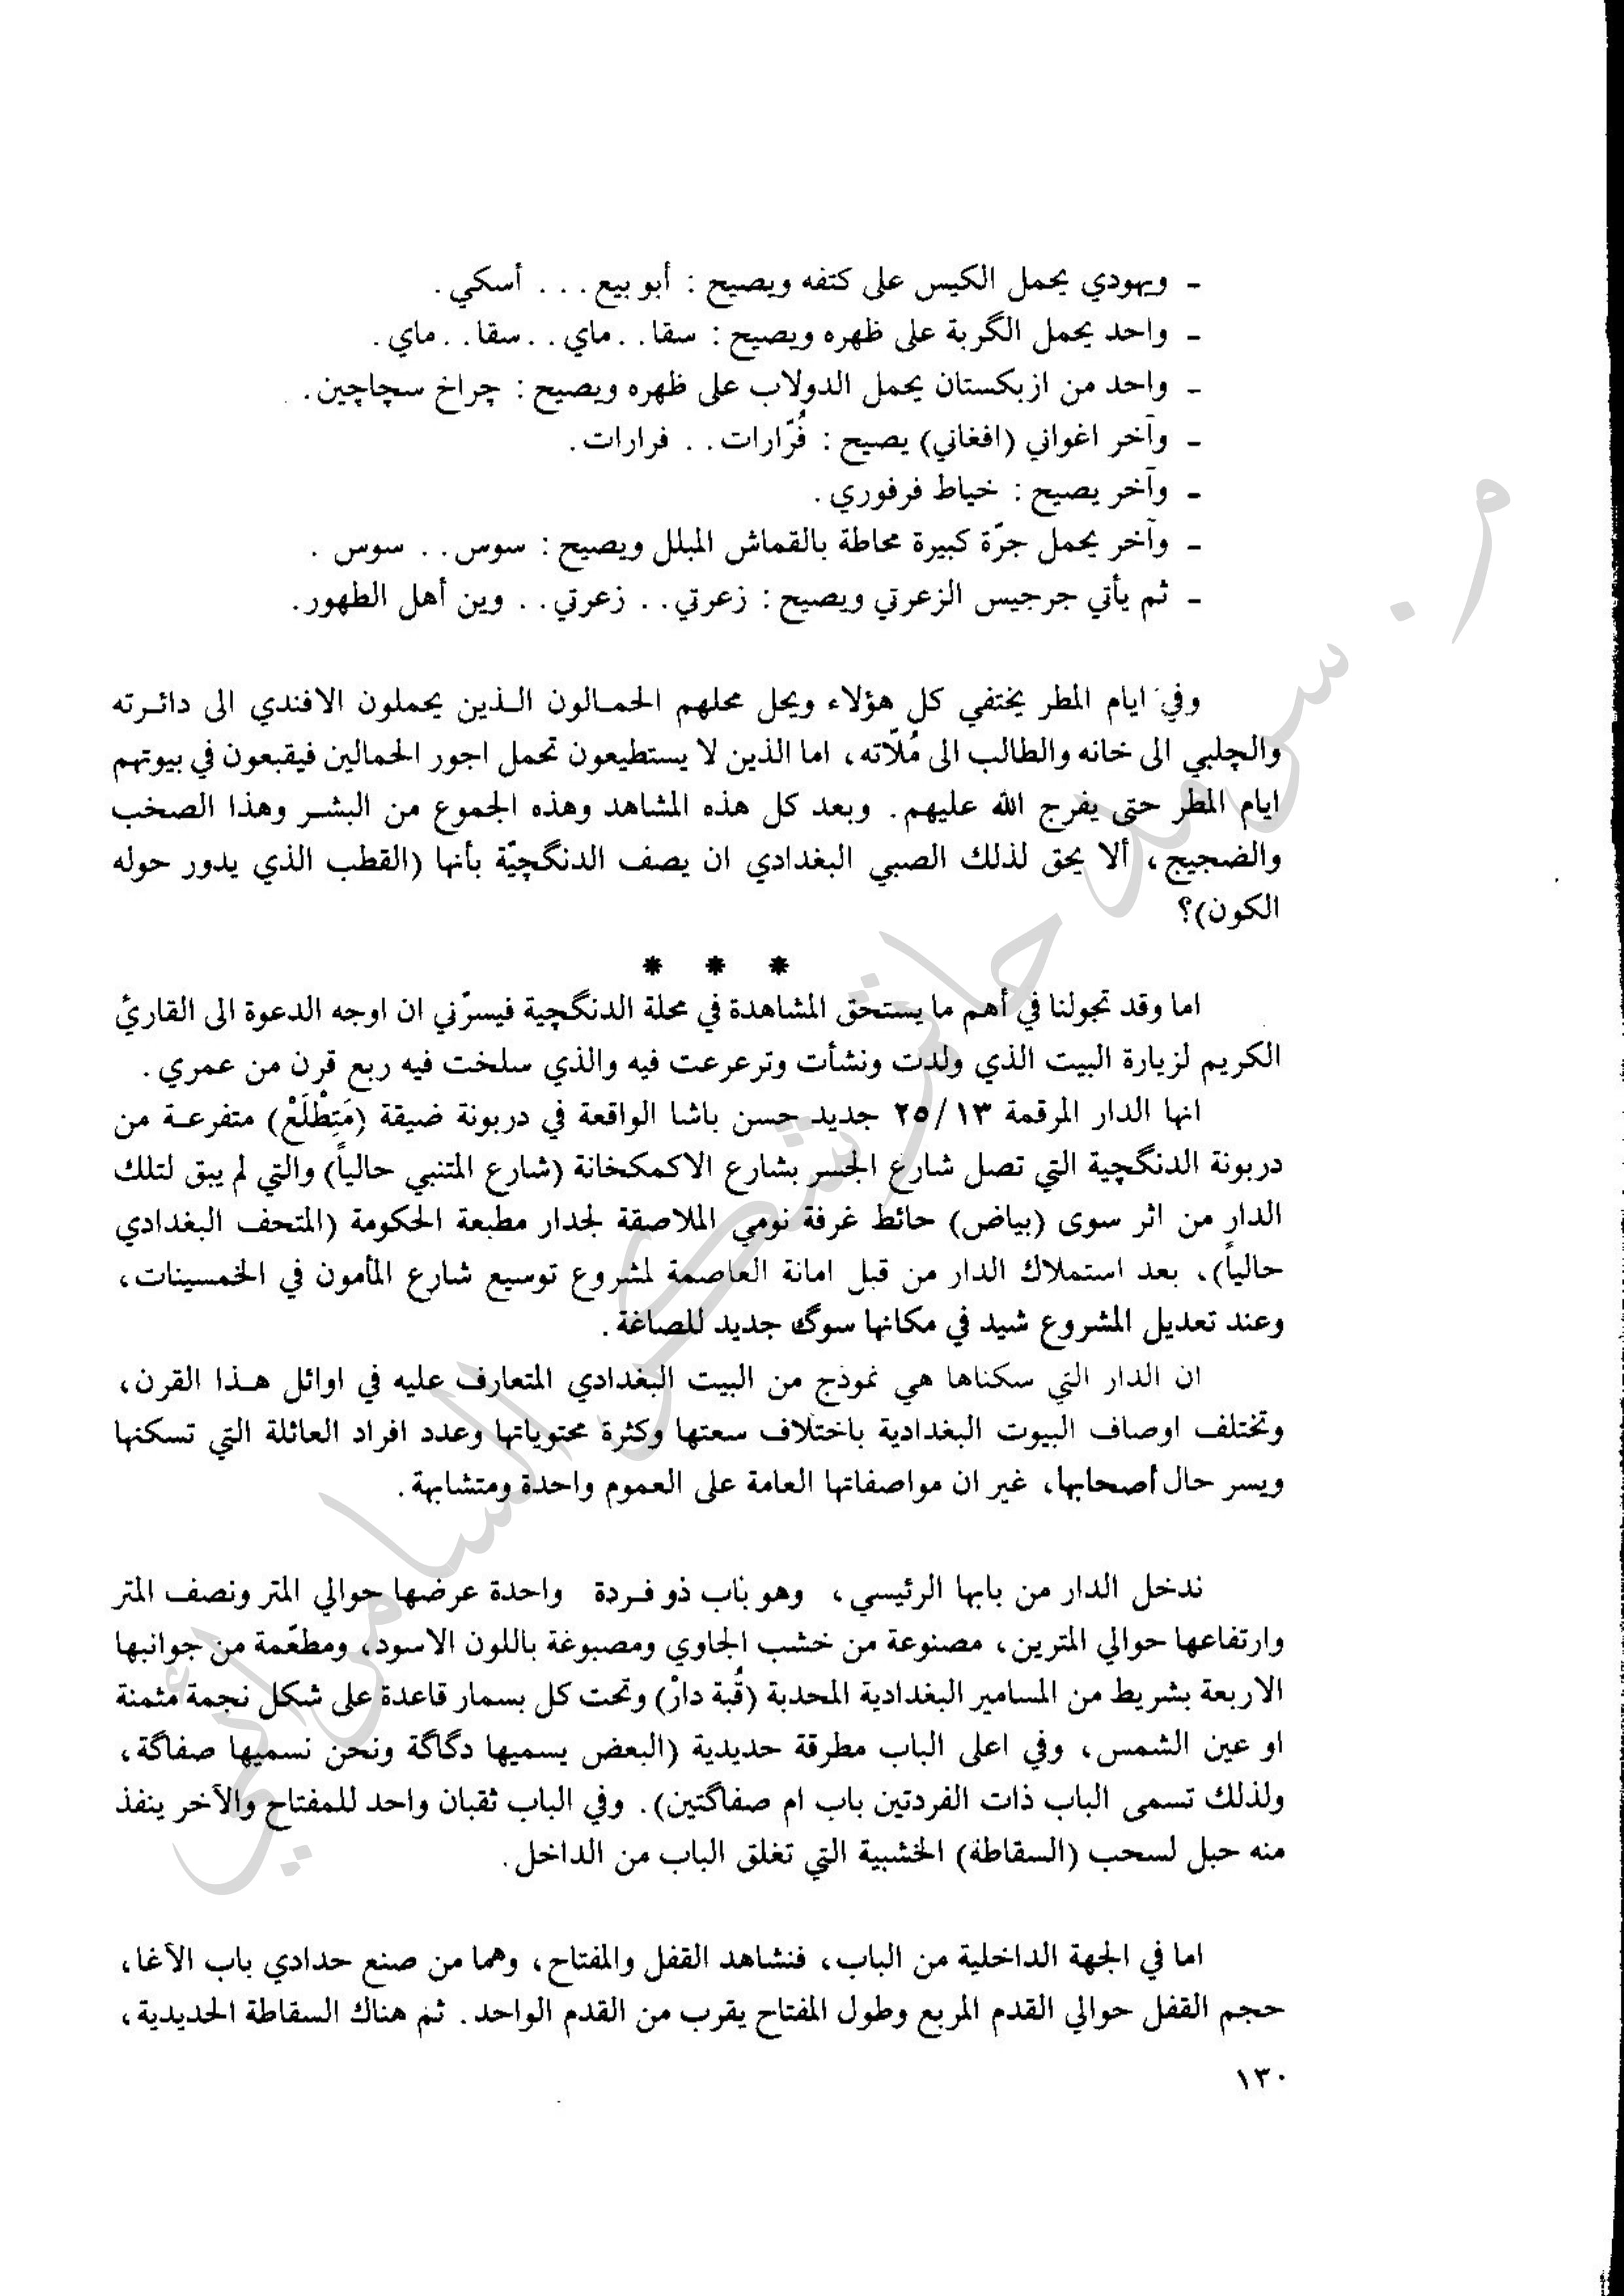 - ويهودي يحمل الكيس على كتفه ويصيح : أبو بيع . . . أسكي .
- واحد يحمل الگربة على ظهره ويصيح : سقا . . ماي . . سقا . . ماي .
- واحد من ازبكستان يحمل الدولاب على ظهره ويصيح : چراخ سچاچين .
- وآخر اغواني (افغاني) يصيح : فُرّارات . . فرارات .
- وآخر يصيح : خياط فرفوري .
- وآخر يحمل جرّة كبيرة محاطة بالقماش المبلل ويصيح : سوس . . سوس .
- ثم يأتي جرجيس الزعرتي ويصيح : زعرتي . . زعرتي . . وين أهل الطهور .
وفي ايام المطر يختفي كل هؤلاء ويحل محلهم الحمـالون الـذين يحملون الافندي الى دائـرته
والچلبي الى خانه والطالب الى مُلّاته ، اما الذين لا يستطيعون تحمل اجور الحمالين فيقبعون في بيوتهم
ايام المطر حتى يفرج الله عليهم . وبعد كل هذه المشاهد وهذه الجموع من البشـر وهذا الصخب
والضجيج ، ألا يحق لذلك الصبي البغدادي ان يصف الدنگچيّة بأنها (القطب الذي يدور حوله
الكون)؟
* * *
اما وقد تجولنا في أهم ما يستحق المشاهدة في محلة الدنگچية فيسرّني ان اوجه الدعوة الى القارئ
الكريم لزيارة البيت الذي ولدت ونشأت وترعرعت فيه والذي سلخت فيه ربع قرن من عمري .
انها الدار المرقمة ١٣/ ٢٥ جديد حسن باشا الواقعة في دربونة ضيقة (مَتِطْلَعْ) متفرعـة من
دربونة الدنگچية التي تصل شارع الجسر بشارع الاكمكخانة (شارع المتنبي حالياً) والتي لم يبق لتلك
الدار من اثر سوى (بياض) حائط غرفة نومي الملاصقة لجدار مطبعة الحكومة (المتحف البغدادي
حالياً) ، بعد استملاك الدار من قبل امانة العاصمة لمشروع توسيع شارع المأمون في الخمسينات ،
وعند تعديل المشروع شيد في مكانها سوگ جديد للصاغة .
ان الدار التي سكناها هي نموذج من البيت البغدادي المتعارف عليه في اوائل هـذا القرن ،
وتختلف اوصاف البيوت البغدادية باختلاف سعتها وكثرة محتوياتها وعدد افراد العائلة التي تسكنها
ويسر حال أصحابها ، غير ان مواصفاتها العامة على العموم واحدة ومتشابهة .
ندخل الدار من بابها الرئيسي ، وهو باب ذو فـردة واحدة عرضها حوالي المتر ونصف المتر
وارتفاعها حوالي المترين ، مصنوعة من خشب الجاوي ومصبوغة باللون الاسود ، ومطعّمة من جوانبها
الاربعة بشريط من المسامير البغدادية المحدبة (قُبة دارْ) وتحت كل بسمار قاعدة على شكل نجمة مثمنة
او عين الشمس ، وفي اعلى الباب مطرقة حديدية (البعض يسميها دگاگة ونحن نسميها صفاگة ،
ولذلك تسمى الباب ذات الفردتين باب ام صفاگتين) . وفي الباب ثقبان واحد للمفتاح والآخر ينفذ
منه حبل لسحب (السقاطة) الخشبية التي تغلق الباب من الداخل .
اما في الجهة الداخلية من الباب ، فنشاهد القفل والمفتاح ، وهما من صنع حدادي باب الآغا ،
حجم القفل حوالي القدم المربع وطول المفتاح يقرب من القدم الواحد . ثم هناك السقاطة الحديدية ،
١٣٠
م. سرمد حاتم شكر السامرائي